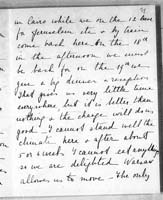 in Cairo while we on the 12 leave
for Jerusalem etc & by train
come back here on the 18th
in the afternoon we must
be back for on the 19th we
give a dinner & reception
That gives us very little time
everywhere but it is better than
nothing & the change will do me
good. I cannot stand well the
climate here & after about
5 or 6 weeks I cannot eat anything
so we are delighted
allows us to move. The only